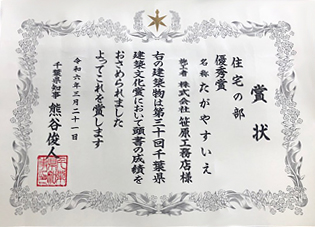 賞状
住宅の部
優秀賞
名称 たがやすいえ
施工者 株式会社 笹原工務店様
右の建築物は第三十回千葉県
建築文化賞において頭書の成績を
おさめられました
よってこれを賞します
令和六年三月二十一日
千葉県知事 熊谷俊人